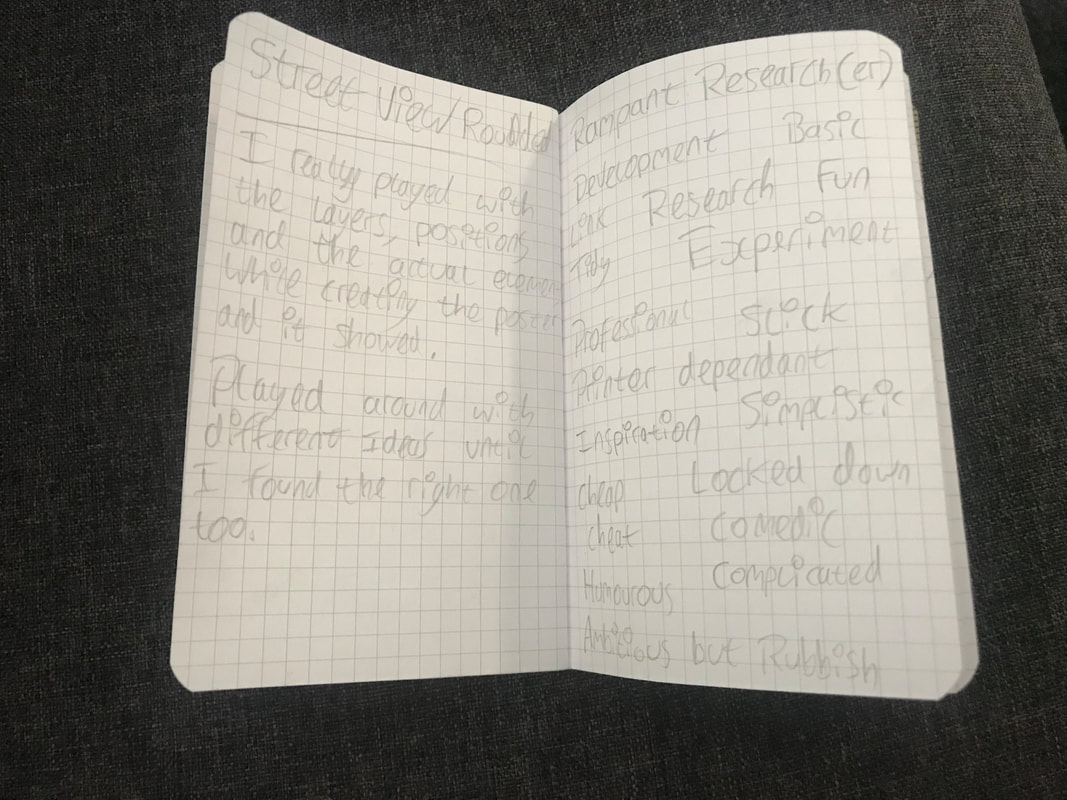 Street View Rounded
I really played with
the layers, positions
and the actual elements
while creating the poster
and it showed.
Played around with
different ideas until
I found the right one
too.
Rampant Research(er)
Development Basic
Link Research Fun
Tidy Experiment
Professional Slick
Printer dependant
Inspiration Simplistic
Cheap Locked down
cheat comedic
Humourous complicated
Ambitious but Rubbish